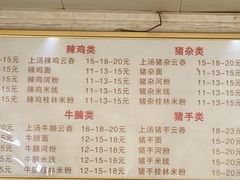 辣鸡类
猪杂类
5元 上汤辣鸡云吞 15—18—20元 上汤猪杂云吞 15—18—20元
—15元 辣鸡面 11—13—15元 猪杂面 11—13—15元
—15元 辣鸡河粉 11—13—15元 猪杂河粉 11—13—15元
—15元 辣鸡米线 11—13—15元 猪杂米线 11—13—15元
—15元 辣鸡桂林米粉 11—13—15元 猪杂桂林米粉 11—13—15元
牛腩类
猪手类
上汤牛腩云吞 16—18—20元 上汤猪手云吞
元 牛腩面 12—15—18元 猪手面
元 牛腩河粉 12—15—18元 猪手河粉
元 牛腩米线 12—15—18元 猪手米线
牛腩桂林米粉 12—15—18元 猪手桂林米粉